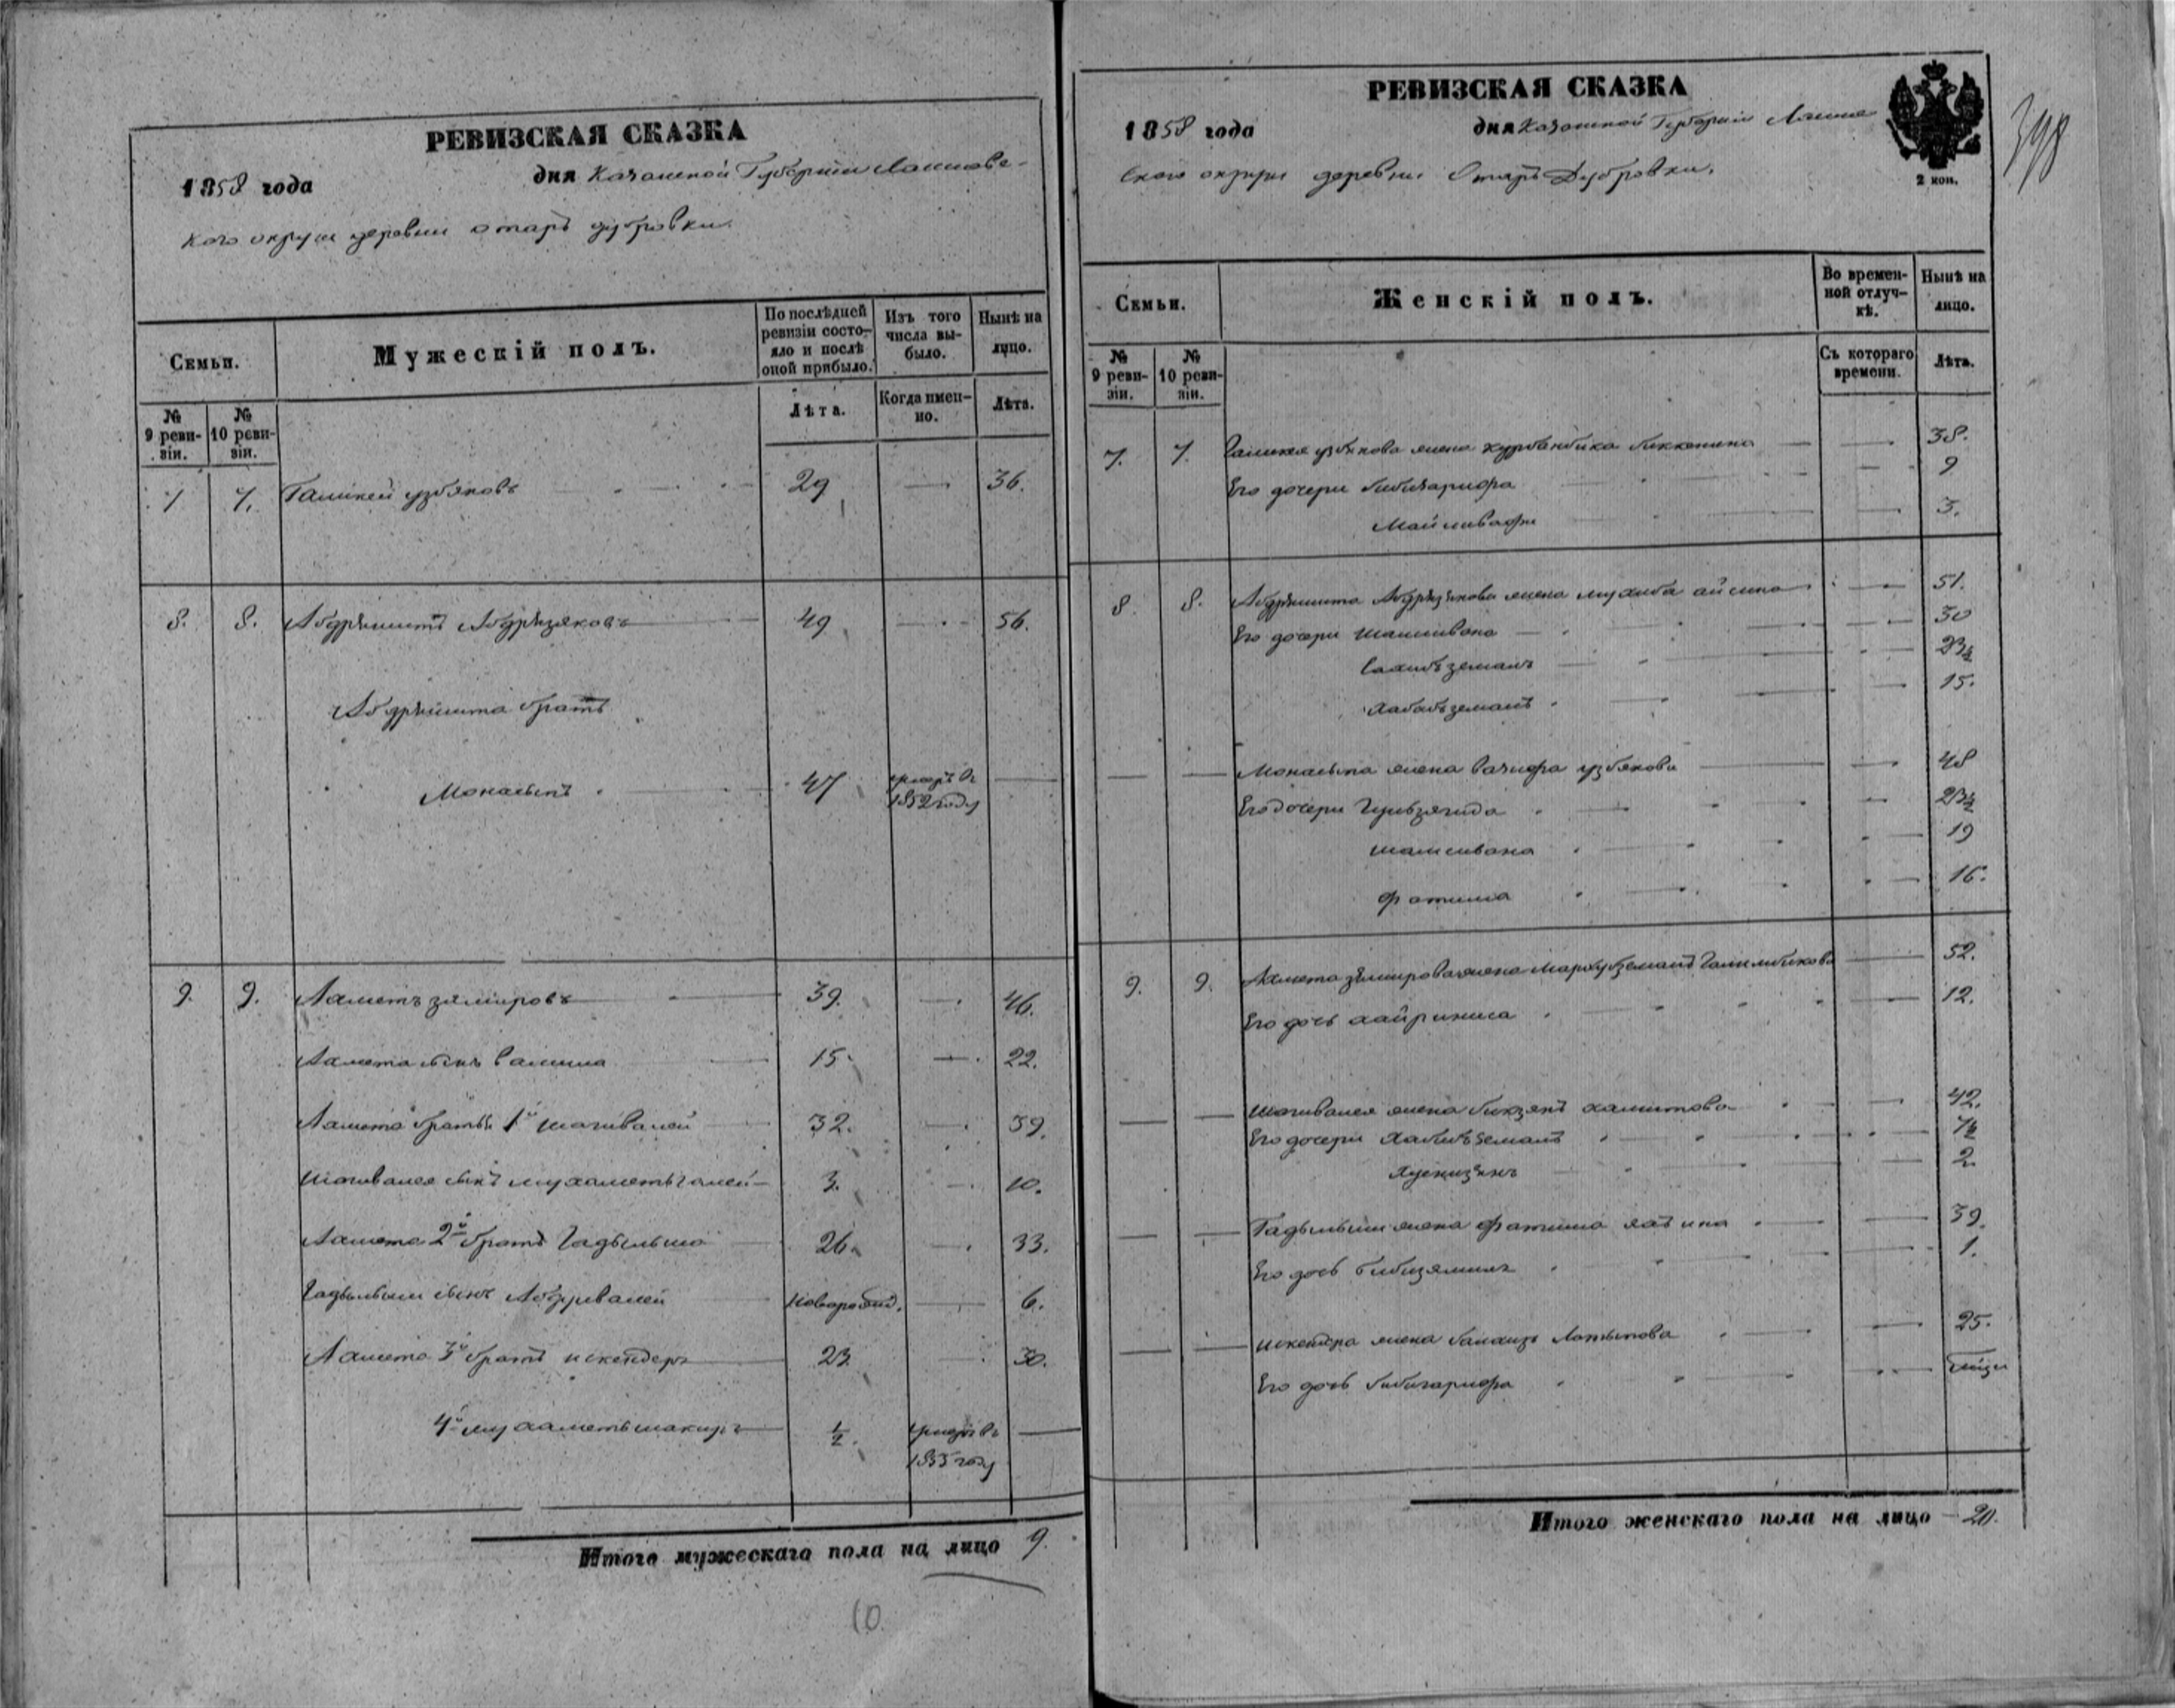 РЕВИЗСКАЯ СКАЗКА
1858 года дня Казанской Губернии Лаишевс-
кого округи деревни отаръ дубровки
Семьи.
Мужескій полъ.
По послѣдней ревизіи состояло и послѣ оной прибыло.
Изъ того числа выбыло.
Нынѣ на лицо.
№ 9 ревизіи.
№ 10 ревизіи.
Лѣта.
Когда именно.
Лѣта.
7 7. Ташкей узбяковъ 29 36.
8. 8. Абдряшитъ Абдрязяковъ 49 56.
Абдряшита братъ
Монасыпъ 47 умеръ въ 1852 году
9. 9. Ахметъ зямировъ 39. 46.
Ахмета сынъ 15. 22.
Ахмета братья 1й шагивалей 32. 39.
Шагивалея сынъ мухаметьгалей 3. 10.
Ахмета 2й братъ Гадыльша 26. 33.
Гадыльши сынъ Абдувалей новорожд. 6.
Ахмета 3й братъ искендеръ 23. 30.
4й мухаметьшакиръ ½. умеръ въ 1855 году
Итого мужескаго пола на лицо 9.
10
РЕВИЗСКАЯ СКАЗКА
1858 года дня Казанской Губернии Лаише
вского округи деревни Отаръ Дубровки.
2 коп.
398
Семьи.
Женскій полъ.
Во временной отлучкѣ.
Нынѣ на лицо.
№ 9 ревизіи.
№ 10 ревизіи.
Съ котораго времени.
Лѣта.
7. 7. Ташкея узбякова жена курбанбика биккенина 38.
Его дочери бибигарифа 9
3.
8. 8. Абдряшита Абдрязякова жена мухиба айсина 51.
Его дочери Шамсивана 30
Сахибъземанъ 23½
Хабибъземанъ 15.
Монасыпа жена вазифа узбякова 48
Его дочери 23½
шамсивана 19
фатима 16.
9. 9. Ахмета зямирова жена 52.
Его дочь хайриниса 12.
Шагивалея жена бикзянъ хамитова 42.
Его дочери Хабибъземанъ 7½
2.
Гадыльши жена фатима 39.
Его дочь бибизямиля 1.
искендера жена Латыпова 25.
Его дочь бибигарифа
Итого женскаго пола на лицо 20.